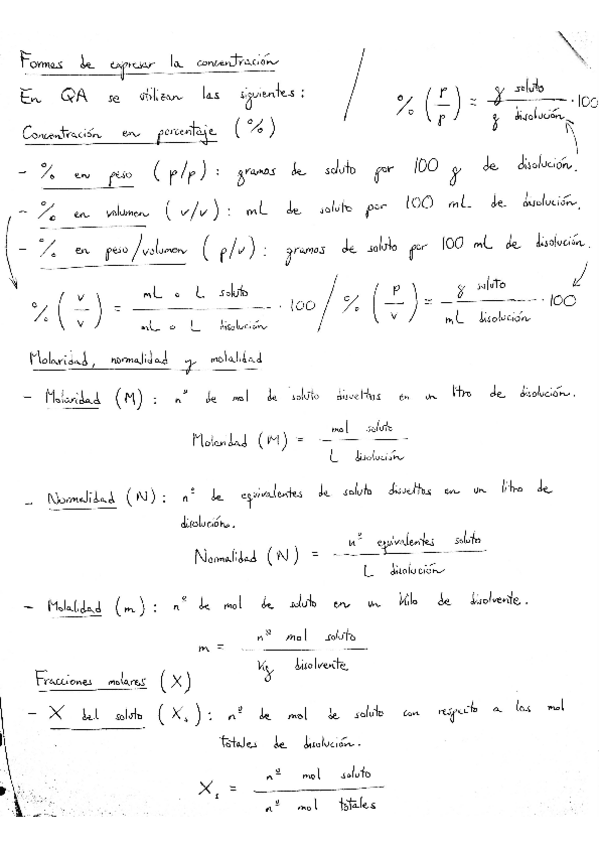 Formas de expresar la concentración
En QA se utilizan las siguientes: / % (p/p) = g soluto / g disolución · 100
Concentración en porcentaje (%)
- % en peso (p/p): gramos de soluto por 100 g de disolución.
- % en volumen (v/v): mL de soluto por 100 mL de disolución.
- % en peso/volumen (p/v): gramos de soluto por 100 mL de disolución.
% (v/v) = mL o L soluto / mL o L disolución · 100 / % (p/v) = g soluto / mL disolución · 100
Molaridad, normalidad y molalidad
- Molaridad (M): nº de mol de soluto disueltos en un litro de disolución.
Molaridad (M) = mol soluto / L disolución
- Normalidad (N): nº de equivalentes de soluto disueltos en un litro de
disolución.
Normalidad (N) = nº equivalentes soluto / L disolución
- Molalidad (m): nº de mol de soluto en un kilo de disolvente.
m = nº mol soluto / Kg disolvente
Fracciones molares (X)
- X del soluto (Xs): nº de mol de soluto con respecto a los mol
totales de disolución.
Xs = nº mol soluto / nº mol totales